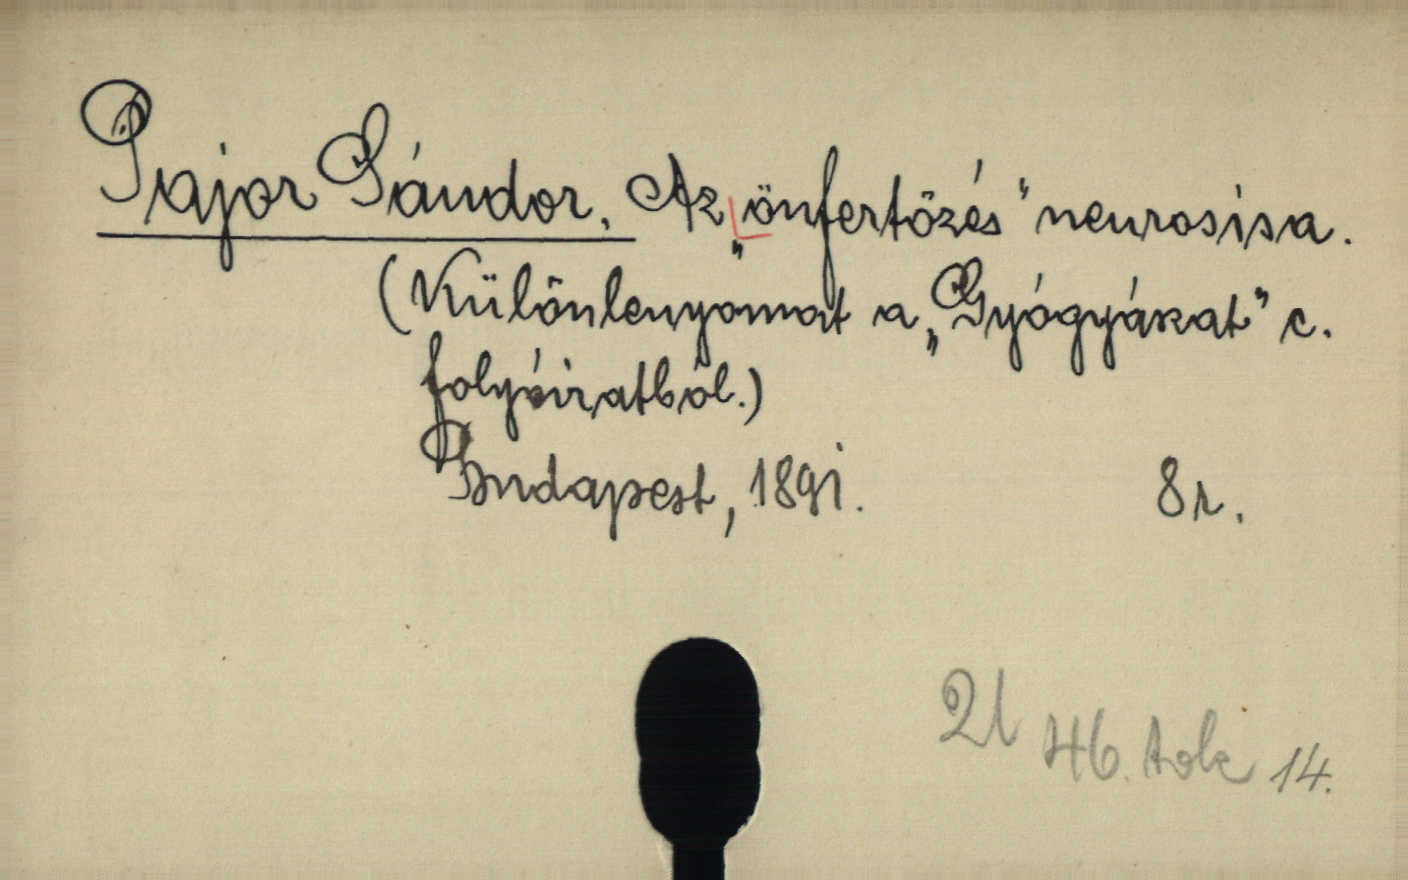 Pajor Sándor. Az „önfertőzés" neurosisa.
(Különlenyomat a „Gyógyászat" c.
folyóiratból.)
Budapest, 1891. 8r.
46. tok 14.